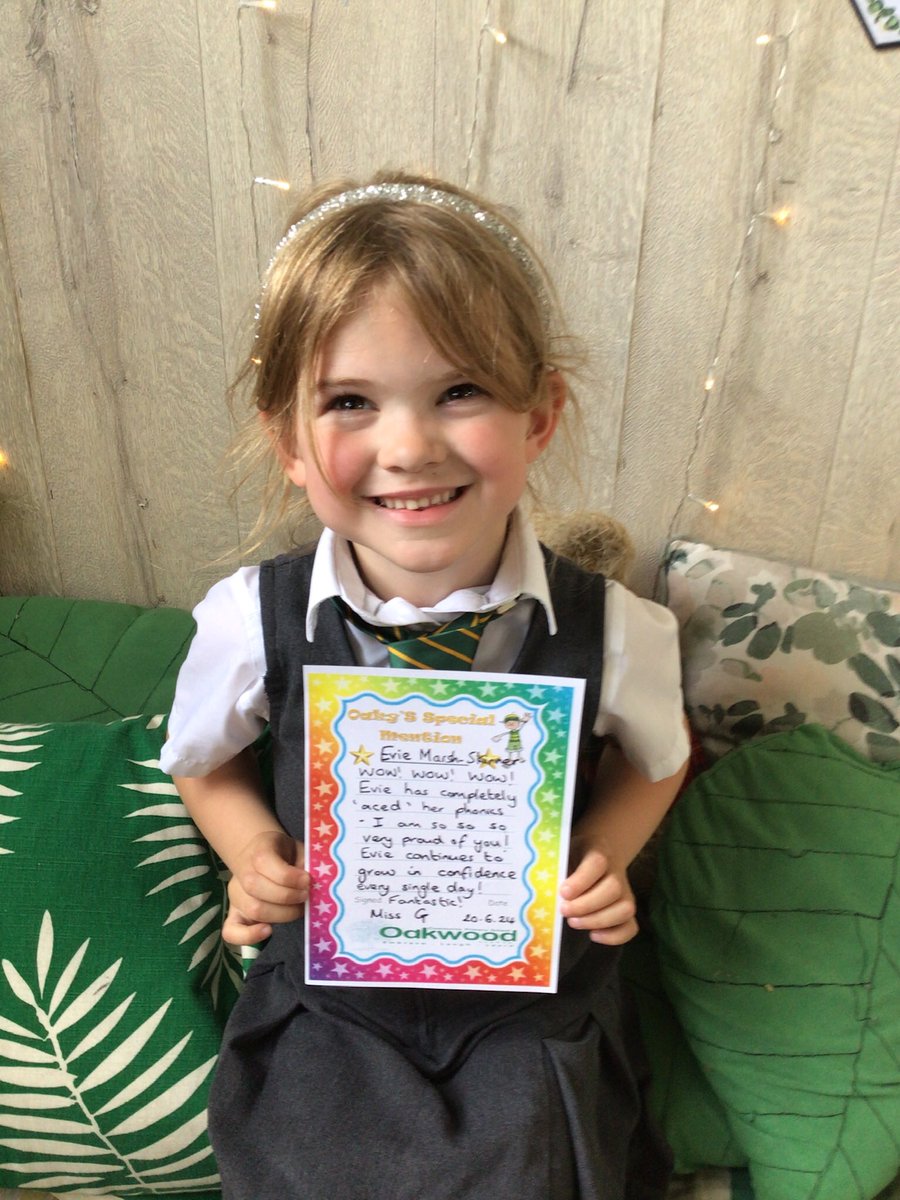 Oaky's Special
Mention
Evie Marsh-Skinner
WOW! WOW! WOW!
Evie has completely
'aced' her phonics
- I am so so so
very proud of you!
Evie continues to
grow in confidence
every single day!
Signed Fantastic! Date
Miss G 20.6.24
Oakwood